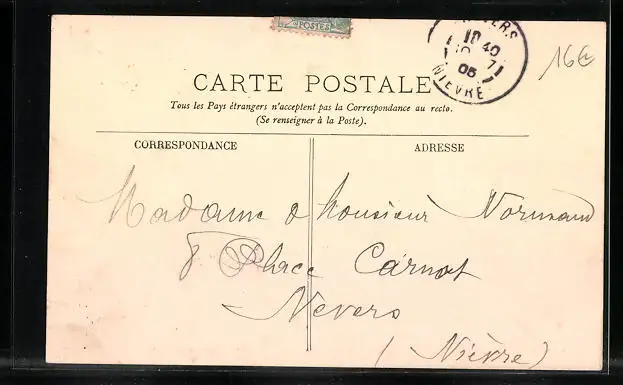 POSTES
NEVERS
10 40
10 - 7
05
NIEVRE
16€
CARTE POSTALE
Tous les Pays étrangers n'acceptent pas la Correspondance au recto.
(Se renseigner à la Poste).
CORRESPONDANCE
ADRESSE
Madame & Monsieur Normand
8 Place Carnot
Nevers
(Nièvre)